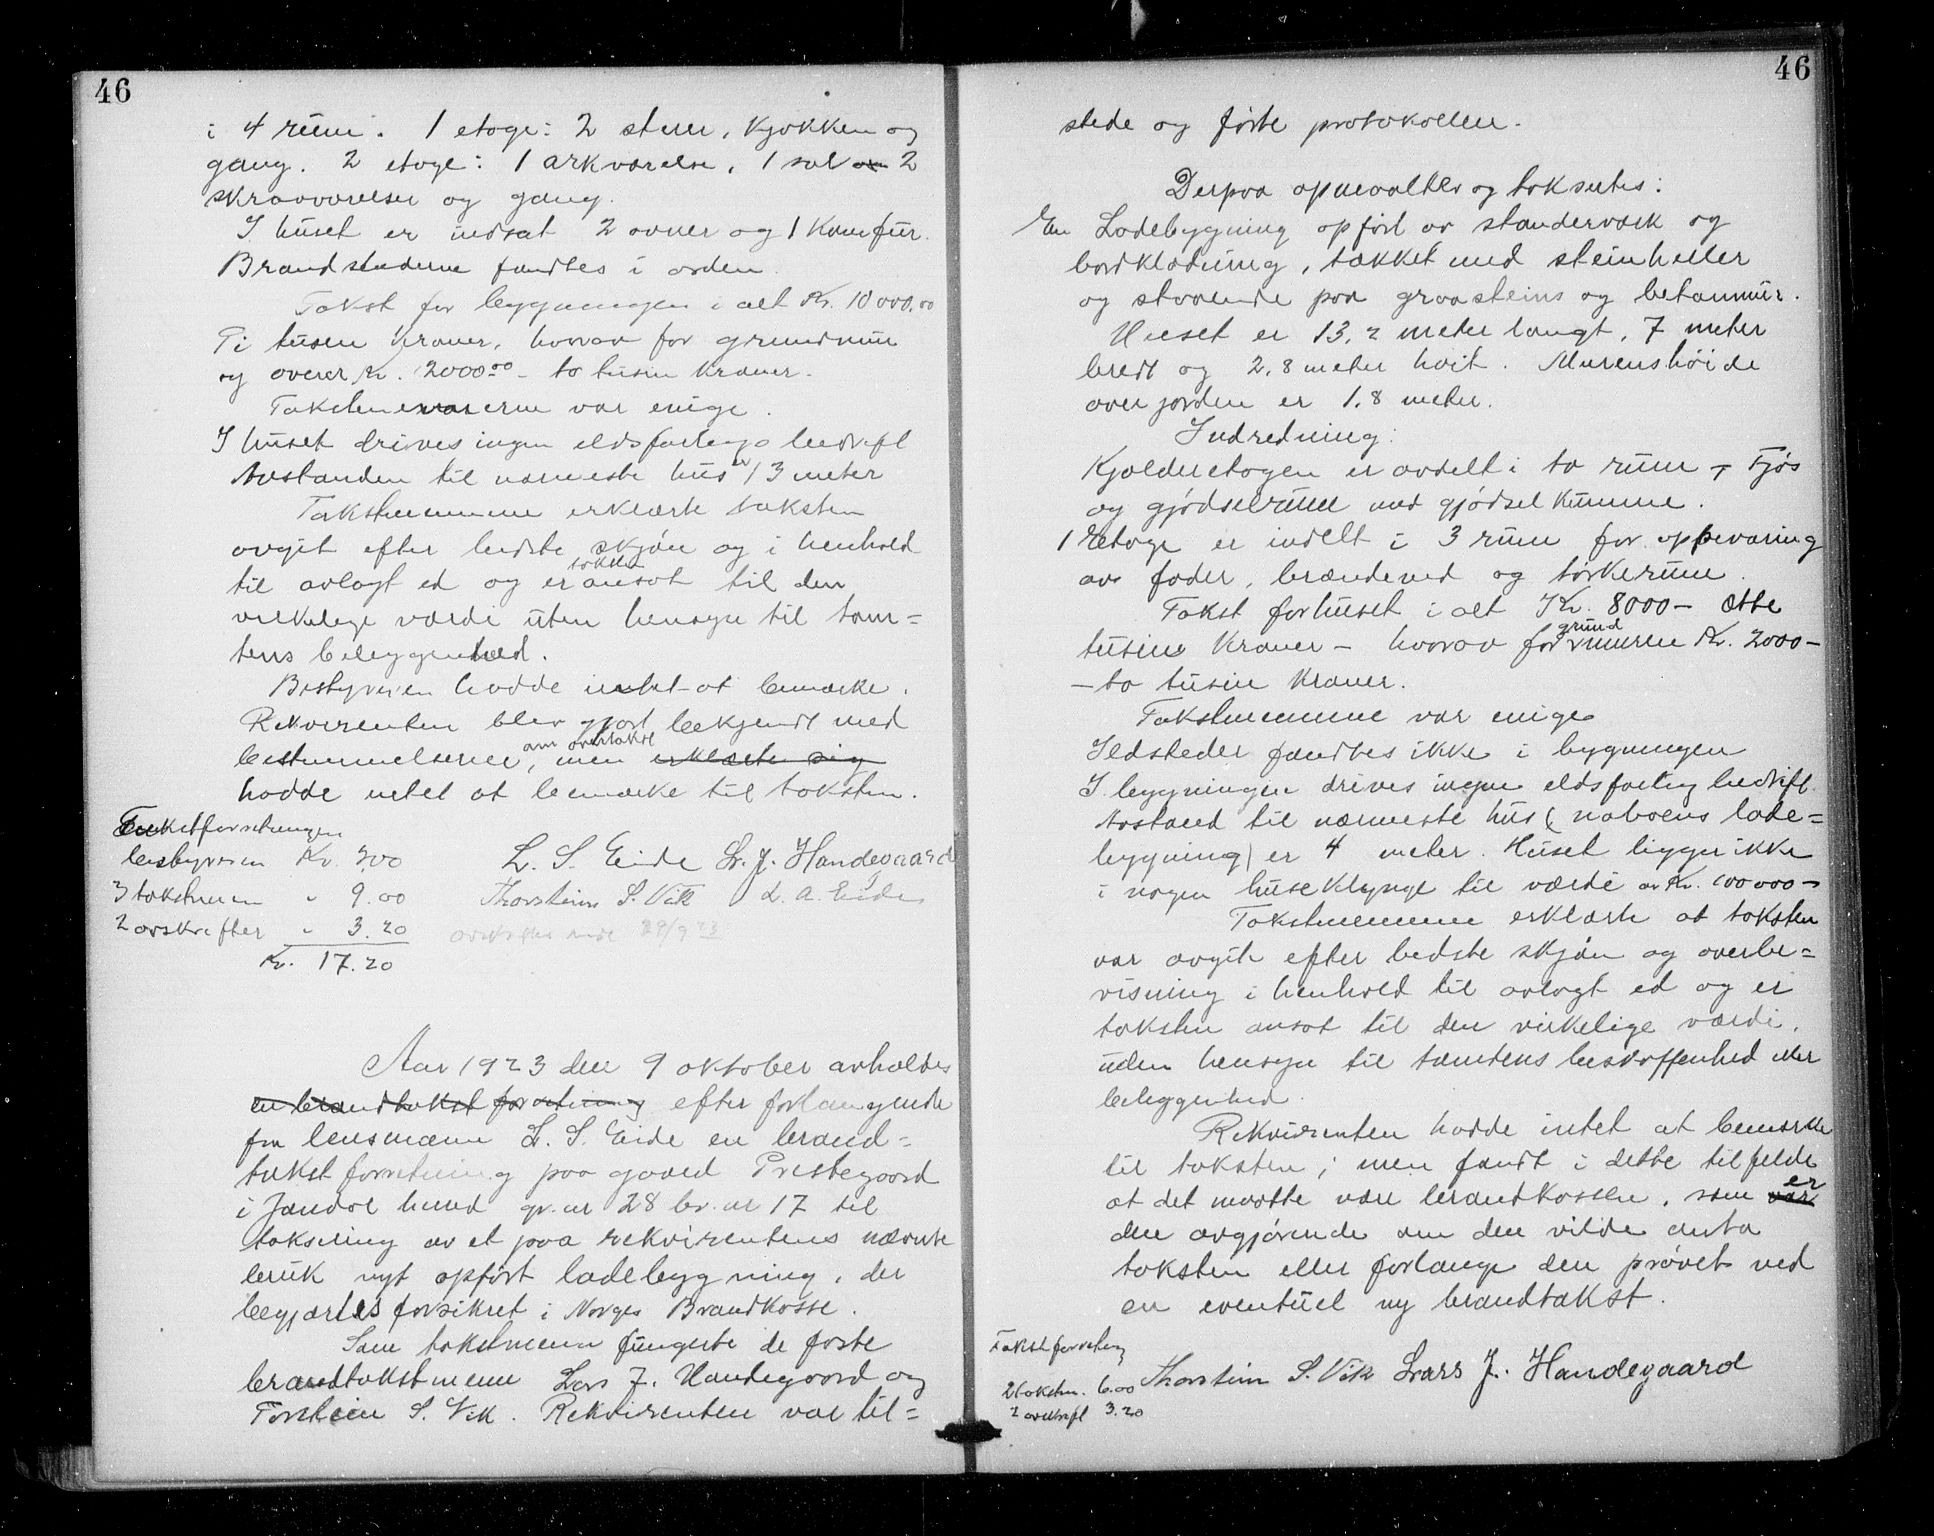 46
i 4 rum. 1 etage: 2 stuer, kjøkken og
gang. 2 etage: 1 arkværelse, 1 sal 2
skraaværelser og gang.
I huset er indsat 2 ovner og 1 Komfur.
Brandstederne fandtes i orden
Takst for bygningen i alt Kr. 10 000.00
Ti tusen kroner, hvorav for grundmur
og Kr. 2000.00 – to tusin kroner.
var enige.
I huset drives ingen eldsfarlig bedrift
Avstanden til nærmeste hus er 13 meter
Takstmennene erklærte taksten
avgit efter bedste skjøn og i henhold
takst
til avlagt ed og er ansat til den
virkelige værdi uten hensyn til tom=
tens beliggenhed.
Bestyreren hadde intet at bemærke.
Rekvirenten blev gjort bekjendt med
om overtakst
bestemmelserne, men erklærte sig
hadde intet at bemærke til taksten.
Takstforretningen
bestyreren Kr. 5.00
3 takstmenn " 9.00
2 avskrifter " 3.20
Kr. 17.20
L. S. Eide Lr. J. Handegaard
Thorstein S. Vik L. A. Eide
29/9 23
Aar 1923 den 9 oktober avholdes
en brandtakst forretning efter forlangende
fra lensmann L. S. Eide en brand=
takst forretning paa gaard Prestegaard
i Jondal herred gr. nr 28 br. nr 17 til
taksering av et paa rekvirentens nævnte
bruk nyt opført ladebygning, der
begjærtes forsikret i Norges Brandkasse.
Som takstmenn fungerte de faste
brandtakstmenn Lars J. Handegaard og
Torstein S. Vik. Rekvirenten var til=
46
stede og førte protokollen.
Derpaa opmaaltes og taksertes:
En Ladebygning opført av standerværk og
bordklædning, tækket med steinheller
og staaende paa graasteins og betonmur.
Huset er 13,2 meter langt, 7 meter
bredt og 2,8 meter høit. Murenshøide
over jorden er 1.8 meter.
Indredning:
Kjelderetagen er avdelt i to rum – Fjøs
og gjødselrum med gjødselkumme.
1 Etage er indelt i 3 rum for oppevaring
av foder, brændeved og tørkerum.
Takst for huset i alt Kr. 8000 – otte
grund
tusin Kroner – hvorav for muren Kr. 2000 –
– to tusin kroner.
Takstmennene var enige
Ildsteder fandtes ikke i bygningen
I bygningen drives ingen eldsfarlig bedrift.
Avstand til nærmeste hus ( naboens lade=
bygning) er 4 meter. Huset ligger ikke
i nogen huseklynge til værdi av Kr. 100 000 –
Takstmennene erklærte at taksten
var avgit efter bedste skjøn og overbe=
visning i henhold til avlagt ed og er
taksten ansat til den virkelige værdi,
uden hensyn til tomtens beskaffenhed eller
beliggenhed.
Rekvirenten hadde intet at bemærke
til taksten; men fandt i dette tilfelde
er
at det maatte være brandkassen, som var
den avgjørende om den vilde anta
taksten eller forlange den prøvet ved
en eventuel ny brandtakst.
Takstforretng
2 takstm. 6.00
2 avskrift 3.20
Thorstein S. Vik Lars J. Handegaard